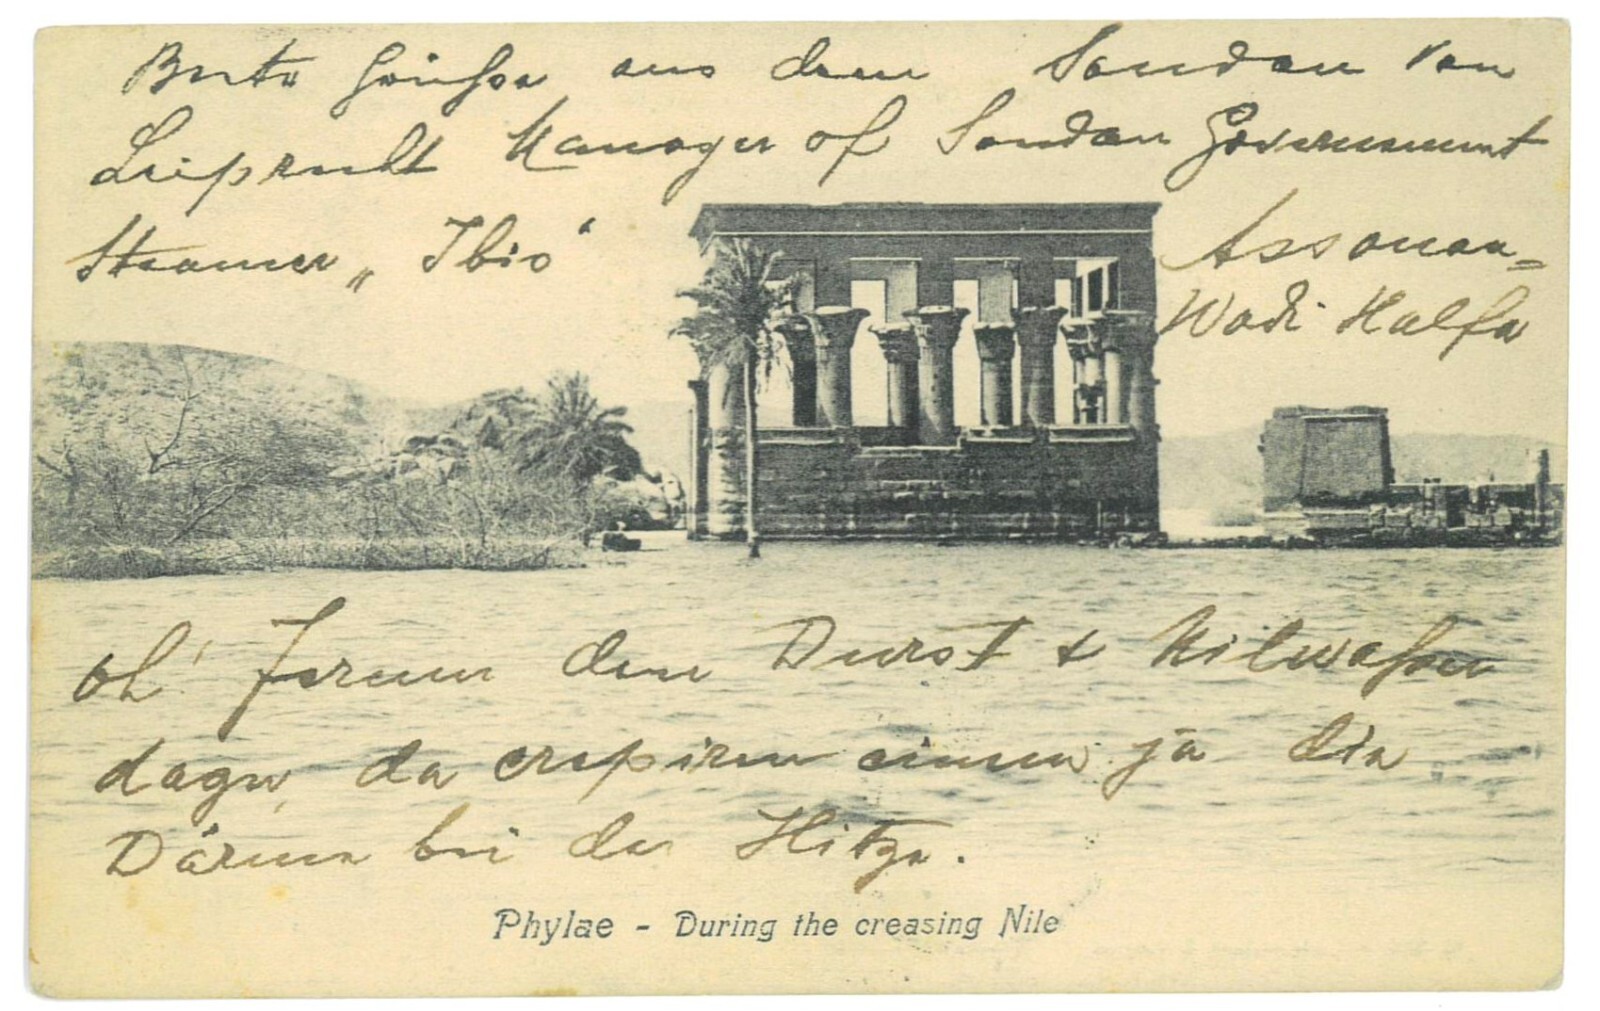 Beste Grüße aus dem Soudan von
Leiprecht Manager of Soudan Government
Steamer „Ibis“ Assouan-
Wadi Halfa
oh' Jerum den Durst & Nilwasser
dazu, da crepiren einem ja die
Därme bei der Hitze.
Phylae - During the creasing Nile